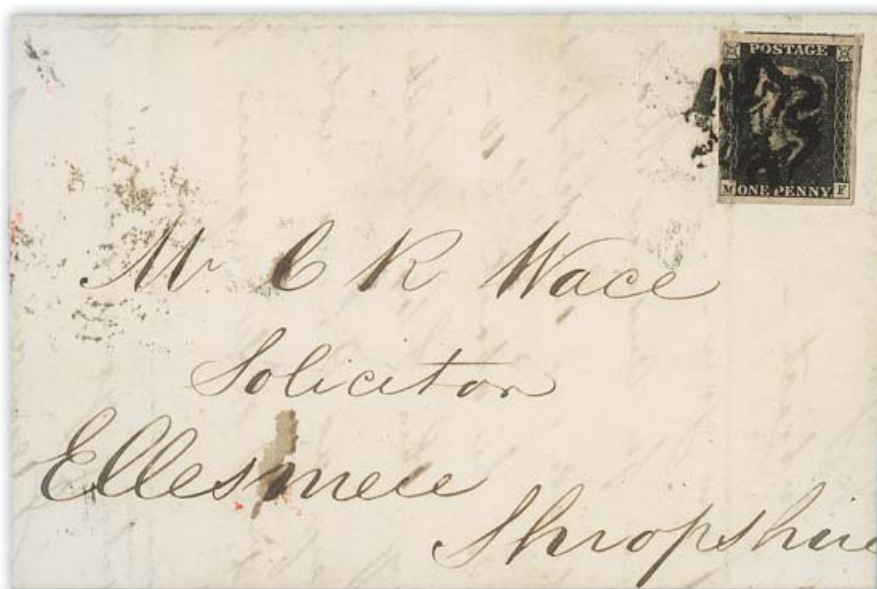 POSTAGE
M ONE PENNY F
Mr. C R Wace
Solicitor
Ellesmere
Shropshire